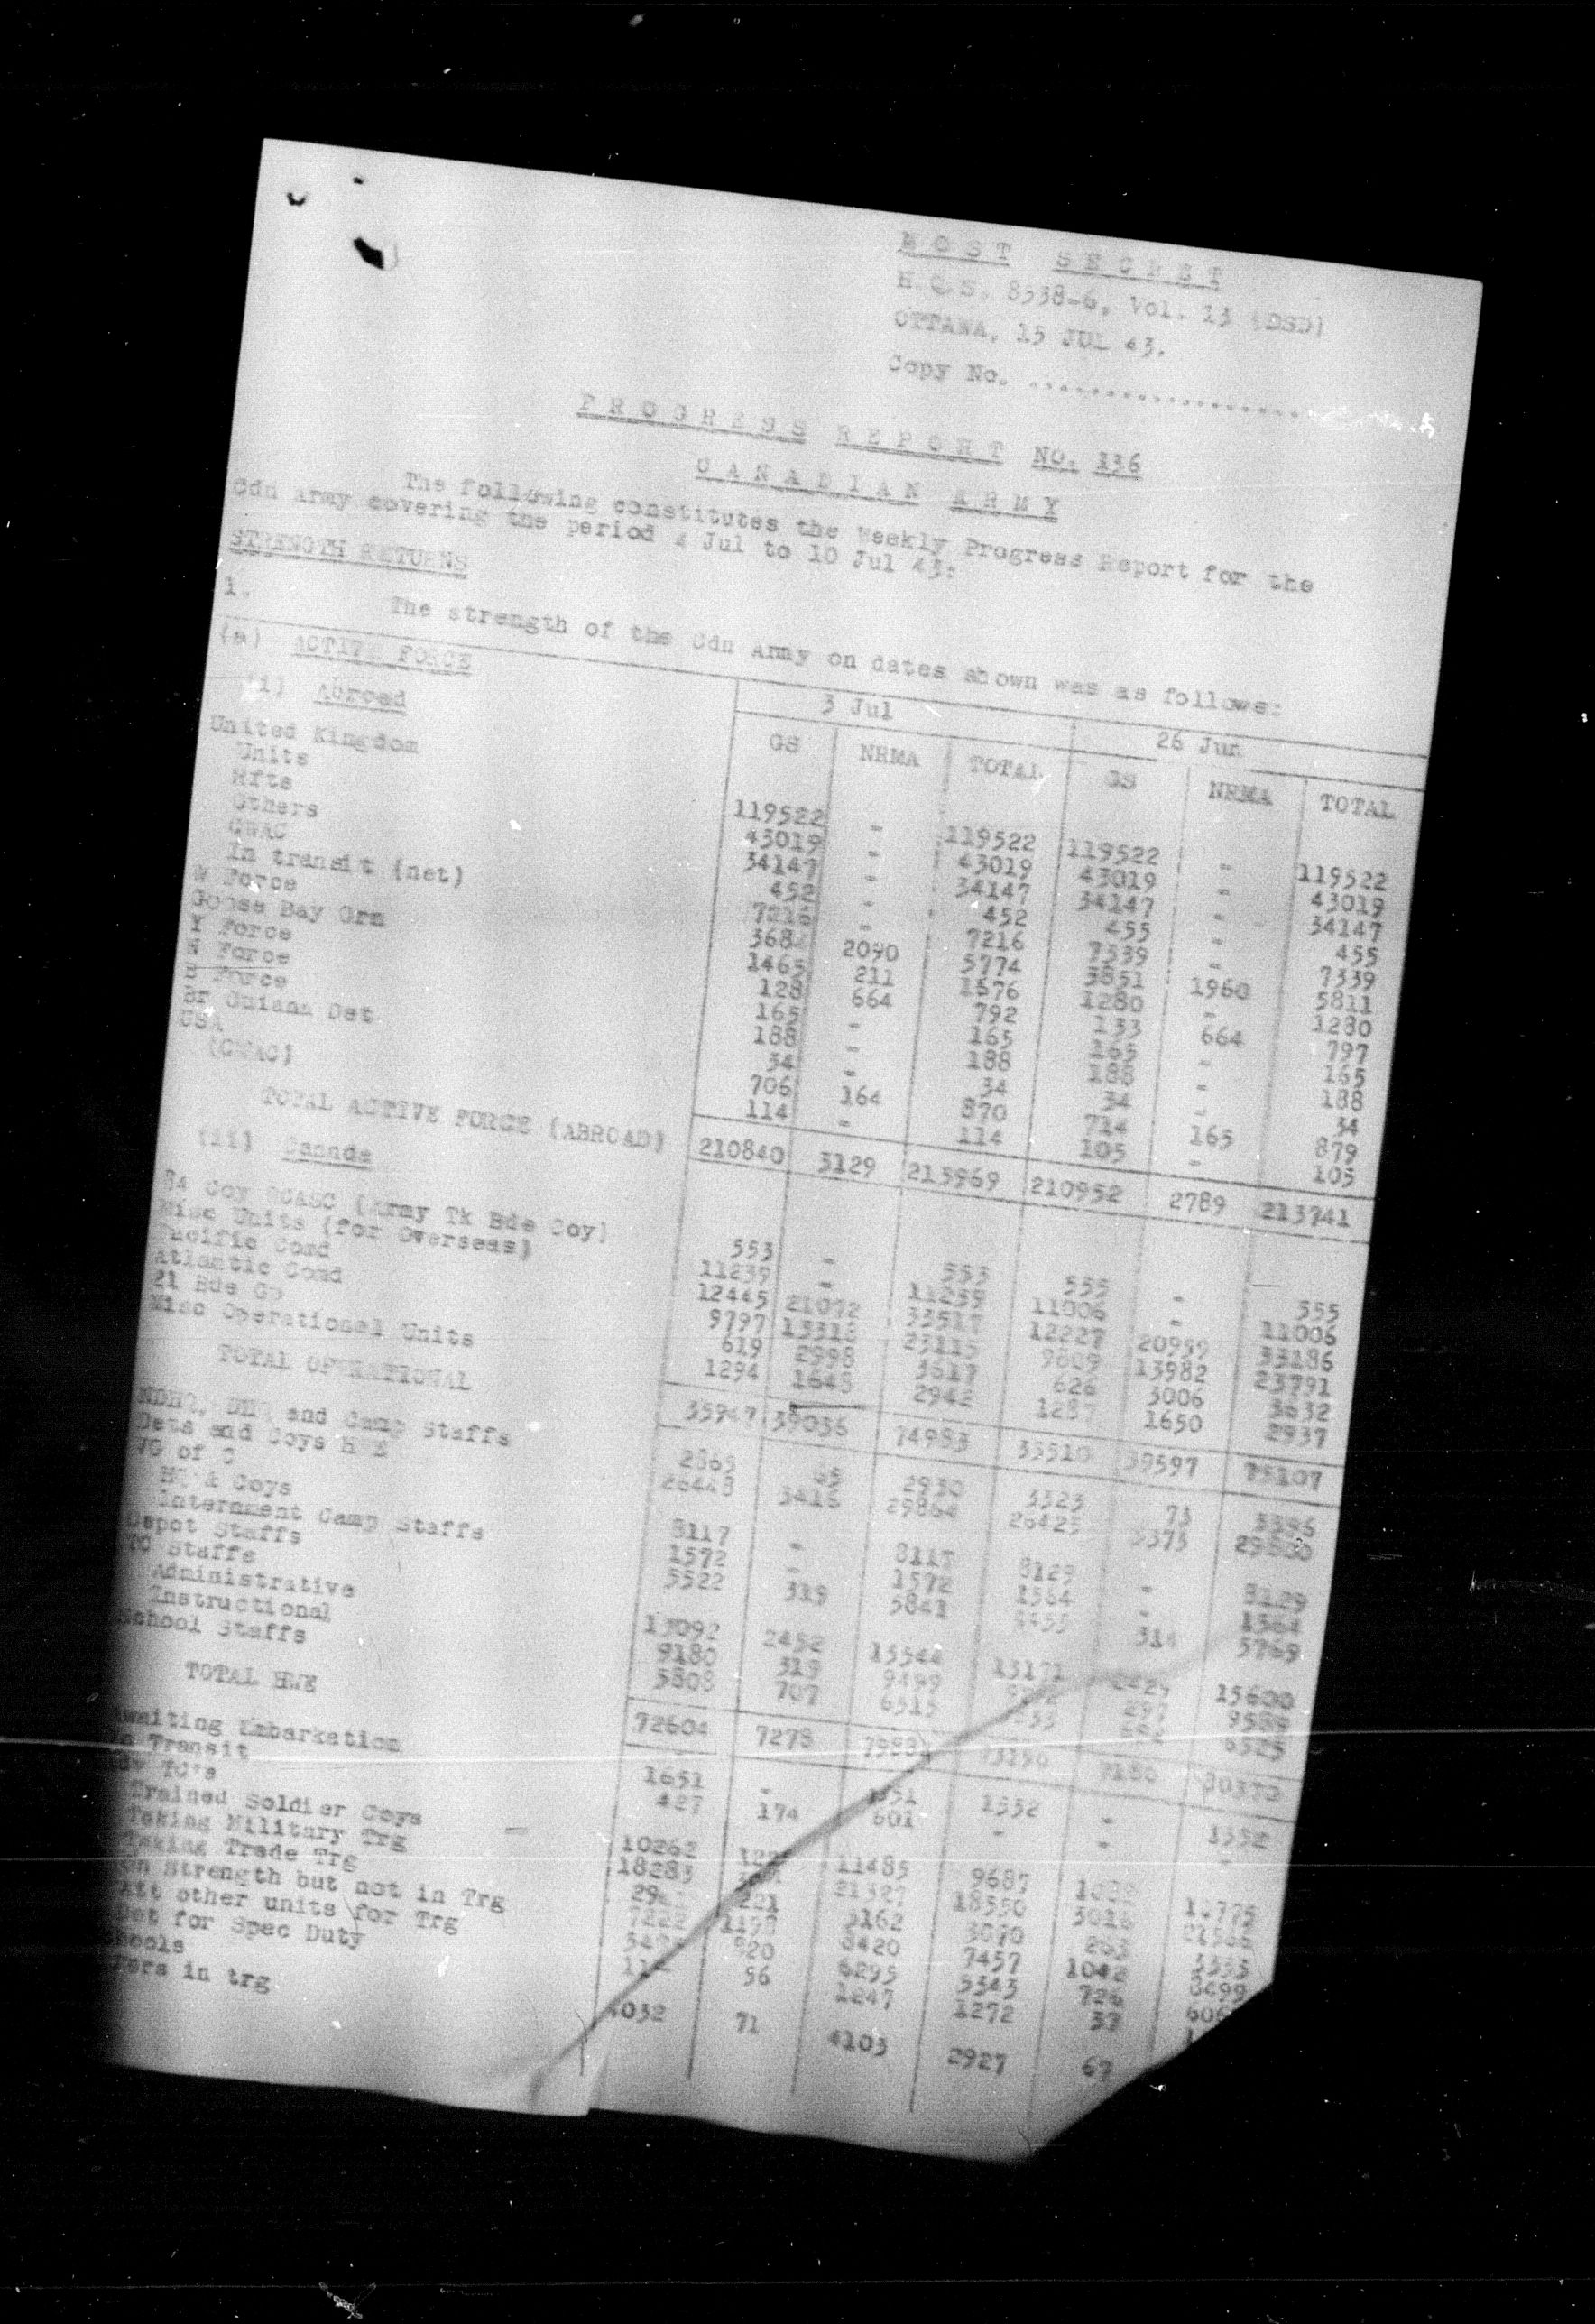 MOST SECRET
H.Q.S. 8538-6, Vol. 13 (DSD)
OTTAWA, 15 JUL 43.
Copy No. ......................
PROGRESS REPORT NO. 136
CANADIAN ARMY
The following constitutes the Weekly Progress Report for the
Cdn Army covering the period 4 Jul to 10 Jul 43:
STRENGTH RETURNS
1. The strength of the Cdn Army on dates shown was as follows:
(a) ACTIVE FORCE 3 Jul 26 Jun
(i) Abroad GS NRMA TOTAL GS NRMA TOTAL
United Kingdom
Units 119522 - 119522 119522 - 119522
Rfts 43019 - 43019 43019 - 43019
Others 34147 - 34147 34147 - 34147
CWAC 452 - 452 455 - 455
In transit (net) 7216 - 7216 7339 - 7339
W Force 368 2090 5774 3851 1960 5811
Goose Bay Grn 1465 211 1676 1280 - 1280
Y Force 128 664 792 133 664 797
N Force 165 - 165 165 - 165
B Force 188 - 188 188 - 188
Br Guiana Det 34 - 34 34 - 34
USA 706 164 870 714 165 879
(CWAC) 114 - 114 105 - 105
TOTAL ACTIVE FORCE (ABROAD) 210840 3129 213969 210952 2789 213741
(ii) Canada
84 Coy RCASC (Army Tk Bde Coy) 553 - 553 555 - 555
Misc Units (for Overseas) 11239 - 11239 11006 - 11006
Pacific Comd 12445 21072 33517 12227 20959 33186
Atlantic Comd 9797 13318 23115 9809 13982 23791
21 Bde Gp 619 2998 3617 626 3006 3632
Misc Operational Units 1294 1648 2942 1287 1650 2937
TOTAL OPERATIONAL 35947 39036 74983 35510 39597 75107
NDHQ, DHQ and Camp Staffs 2865 65 2930 3323 73 3396
Dets and Coys H E 26448 3416 29864 26425 3375
VG of C
HQ & Coys 8117 - 8117 8129 - 8129
Internment Camp Staffs 1572 - 1572 1564 - 1564
Depot Staffs 5522 319 5841 5455 314 5769
TC Staffs
Administrative 13092 2452 15544 13171 2429 15600
Instructional 9180 319 9499 297 9589
School Staffs 5808 707 6515 6525
TOTAL HWE 72604 7278 73190 7180 80370
Awaiting Embarkation 1651 - 1552 - 1552
In Transit 427 174 601 - -
TC's
Trained Soldier Coys 10262 11485 9687
Taking Military Trg 18283 21327 18550 3018
Taking Trade Trg 221 3162 3070 263 3333
On Strength but not in Trg 7222 1198 8420 7457 1042 8499
Att other units for Trg 820 6295 5343 726
Det for Spec Duty 56 1247 1272 37
Schools
in trg 4032 71 4103 2927 67